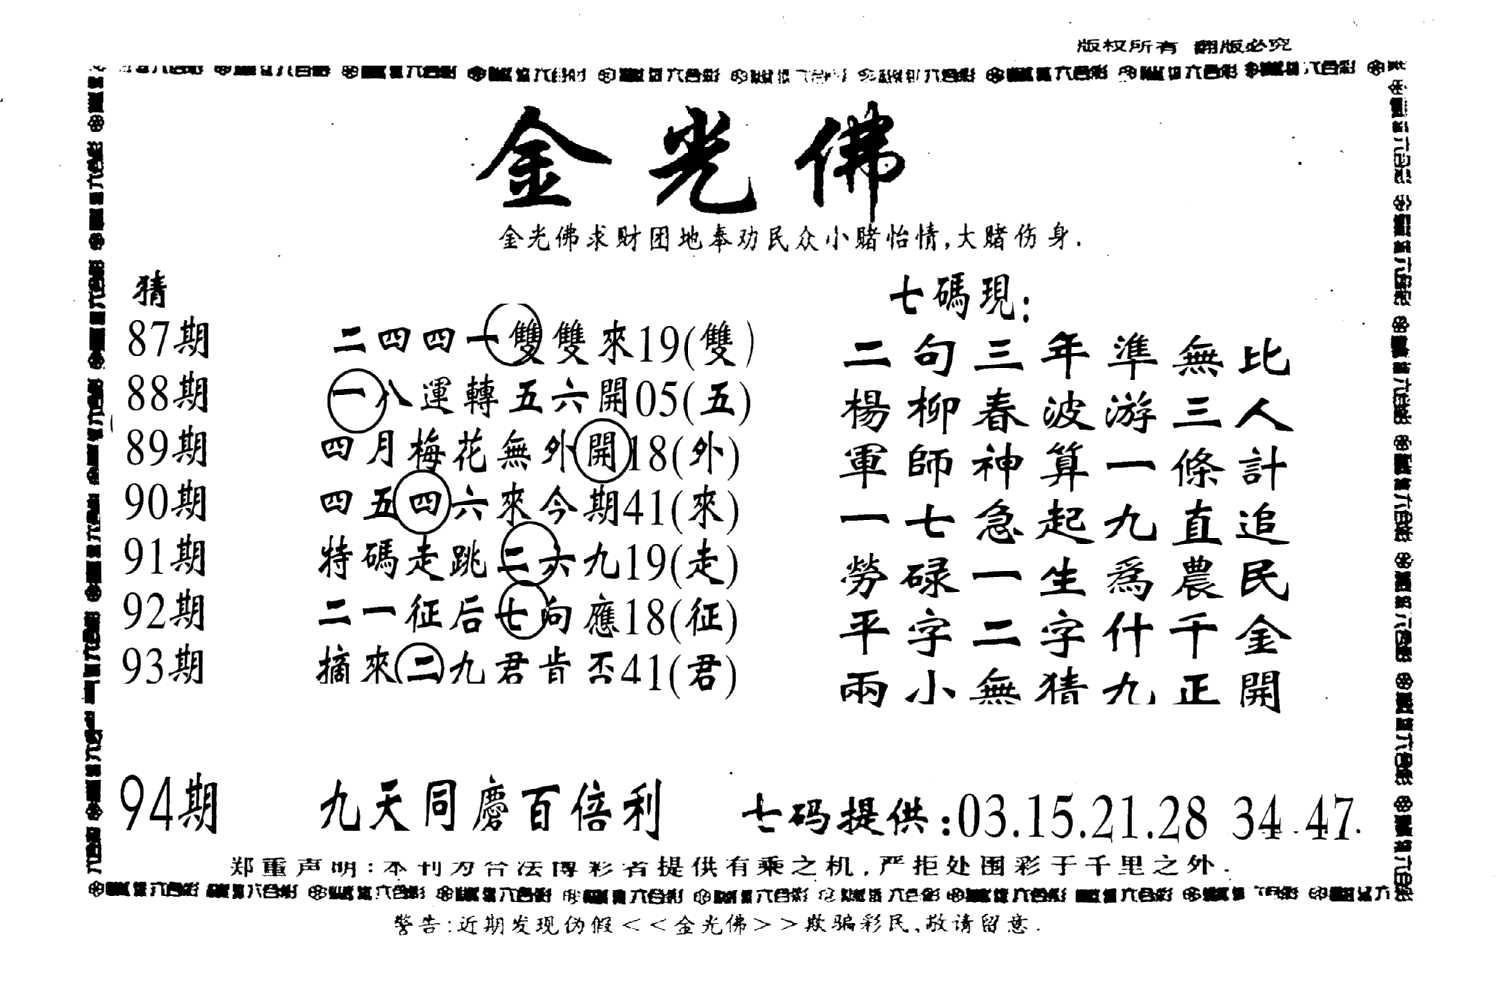 版权所有 翻版必究
金光佛
金光佛求财团地奉劝民众小赌怡情,大赌伤身.
猜
87期 二四四一雙雙來19(雙)
88期 一八運轉五六開05(五)
89期 四月梅花無外開18(外)
90期 四五四六來今期41(來)
91期 特碼走跳二六九19(走)
92期 二一征后七向應18(征)
93期 摘來二九君肯否41(君)
七碼現:
二句三年準無比
楊柳春波游三人
軍師神算一條計
一七急起九直追
勞碌一生為農民
平字二字什千金
兩小無猜九正開
94期 九天同慶百倍利 七码提供:03.15.21.28 34.47.
郑重声明:本刊为合法博彩者提供有乘之机,严拒处围彩于千里之外.
警告:近期发现伪假<<金光佛>>欺骗彩民,敬请留意.